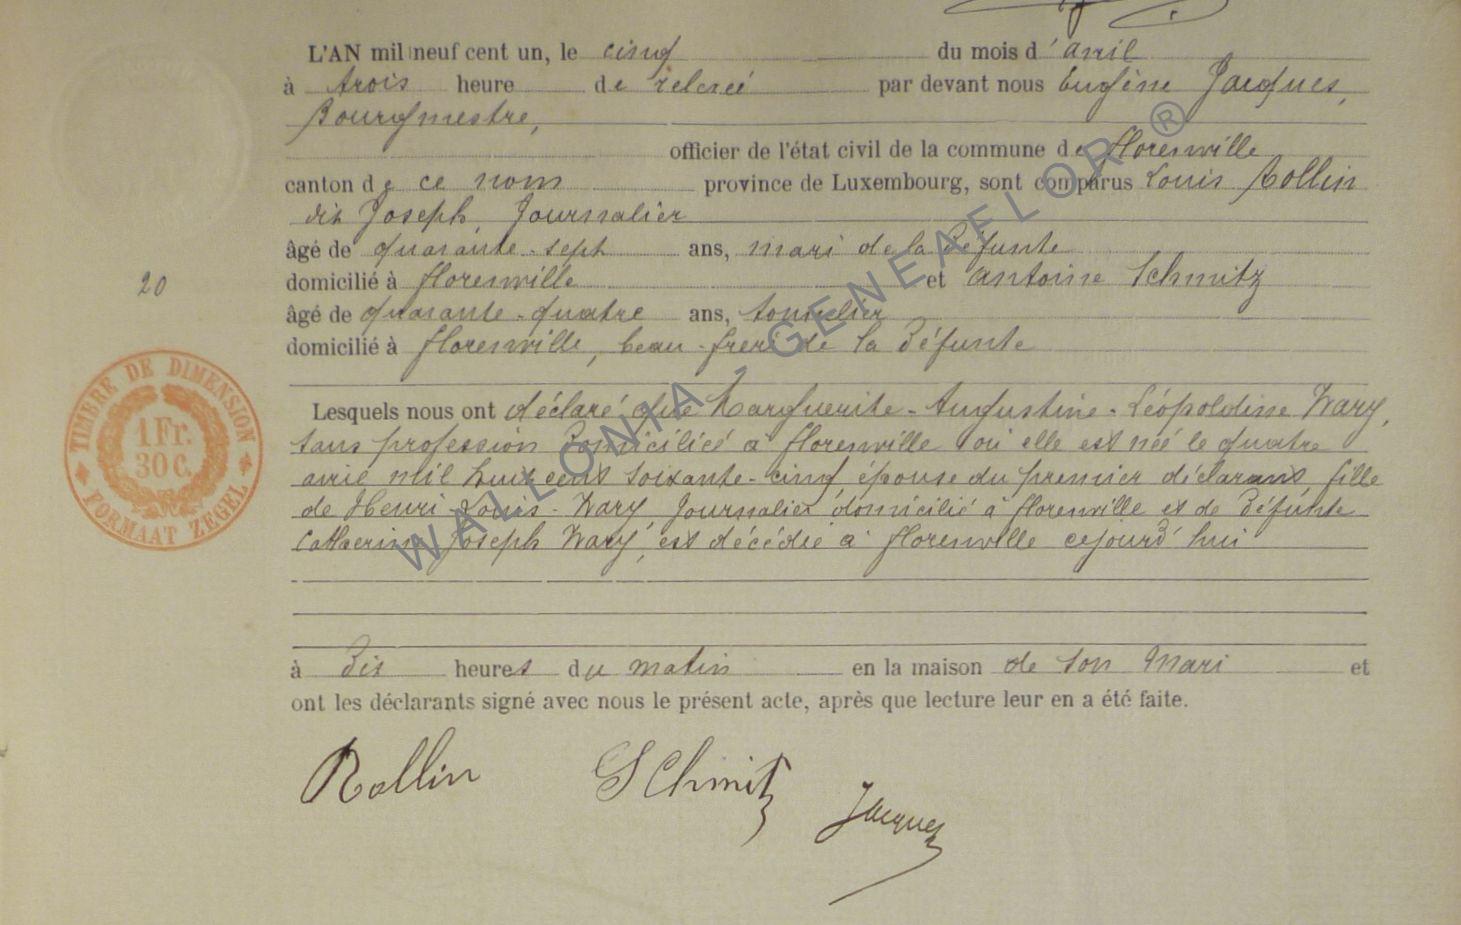 L'AN mil neuf cent un, le cinq du mois d'avril
à trois heure de relevé par devant nous Eugène Jacques,
Bourgmestre,
officier de l'état civil de la commune de florenville
canton de ce nom province de Luxembourg, sont comparus Louis Rollin
dit Joseph, Journalier
âgé de quarante-sept ans, mari de la Défunte
domicilié à florenville et antoine Schmitz
20
âgé de quarante-quatre ans, tonnelier
domicilié à florenville, beau-frère de la Défunte
Lesquels nous ont déclaré que Marguerite-Augustine-Léopoldine Wary,
sans profession Domiciliée à florenville où elle est née le quatre
avril mil huit cent soixante-cinq épouse du premier déclarant fille
de Henri-Louis-Wary Journalier domicilié à florenville et de Défunte
Catherine Joseph Wary, est décédée à florenville cejourd'hui
à Dix heures du matin en la maison de son Mari et
ont les déclarants signé avec nous le présent acte, après que lecture leur en a été faite.
Rollin Schmitz Jacques
TIMBRE DE DIMENSION
1 Fr.
30 C.
FORMAAT ZEGEL
WALLONIA - GENEAFLOR ®